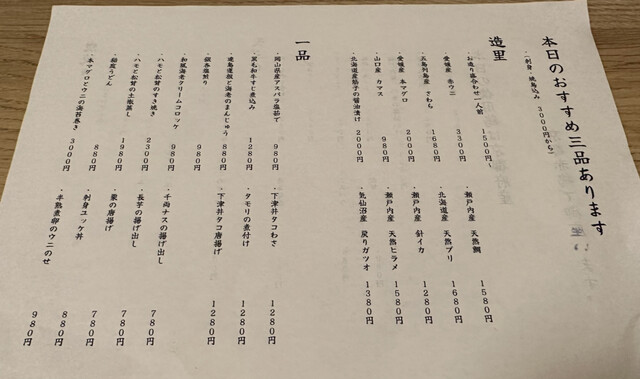 本日のおすすめ三品あります
(刺身・焼鳥込み 3000円から)
造里
・お造り盛合わせ一人前 1500円~
・愛媛産 赤ウニ 3300円
・五島列島産 さわら 1680円
・愛媛産 本マグロ 2000円
・山口産 カマス 980円
・北海道産筋子の醤油漬け 2000円
・瀬戸内産 天然鯛 1580円
・北海道産 天然ブリ 1680円
・瀬戸内産 針イカ 1280円
・瀬戸内産 天然ヒラメ 1580円
・気仙沼産 戻りガツオ 1380円
一品
・岡山県産アスパラ塩茹で 980円
・黒毛和牛すじ煮込み 1280円
と海老のまんじゅう 880円
・銀杏塩煎り 980円
・和風海老クリームコロッケ 980円
・ハモと松茸のすき焼き 2300円
・ハモと松茸の土瓶蒸し 1980円
・稲庭うどん 880円
・本マグロとウニの海苔巻き 3000円
・下津井タコわさ 1280円
・タモリの煮付け 1280円
・下津井タコ唐揚げ 1280円
・千両ナスの揚げ出し 780円
・長芋の揚げ出し 780円
の唐揚げ 780円
・刺身ユッケ丼 880円
・半熟煮卵のウニのせ 980円